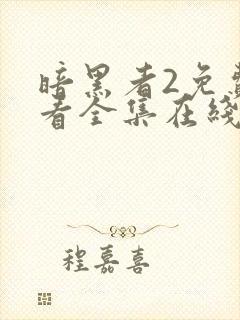 暗黑者2免费
看全集在线
程嘉喜